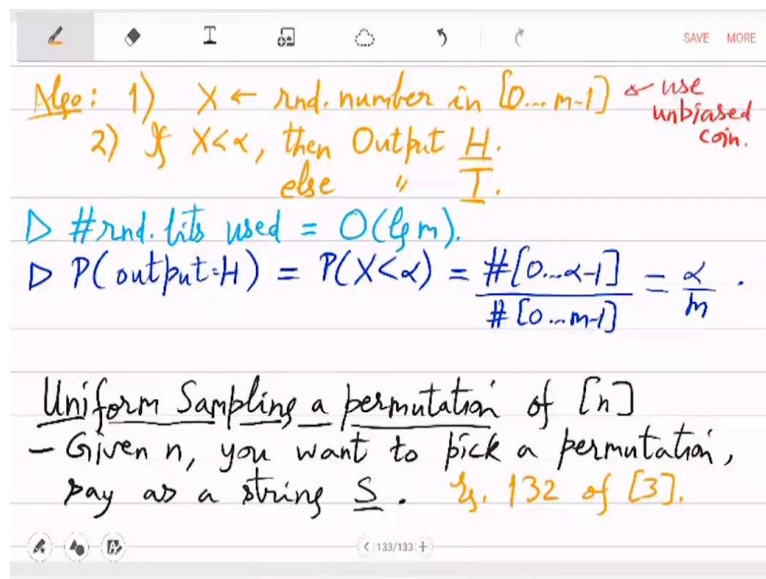 T
SAVE MORE
Algo: 1) X ← rnd. number in [0...m-1] ← use unbiased coin.
2) If X<α, then Output H.
else " T.
▷ #rnd. bits used = O(lg m).
▷ P(output=H) = P(X<α) = #[0...α-1] / #[0...m-1] = α/m.
Uniform Sampling a permutation of [n]
- Given n, you want to pick a permutation,
say as a string S. Eg. 132 of [3].
< 133/133 +